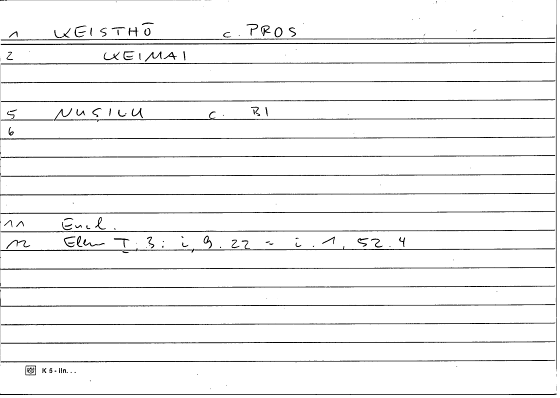 1 KEISTHŌ c. PROS
2 KEIMAI
5 NUṢILU c. BI
6
11 Eucl.
12 Elem I. 3: i, 9. 22 = i. 1, 52. 4
K 5 - lin. . .